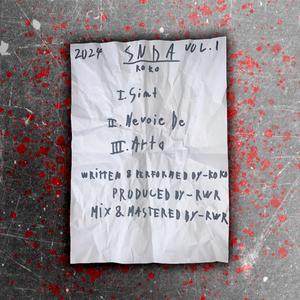 2024 SNDA VOL.1
ROKO
I. Simt
II. Nevoie De
III. Arta
WRITTEN & PERFORMED BY-ROKO
PRODUCED BY-RWR
MIX & MASTERED BY-RWR